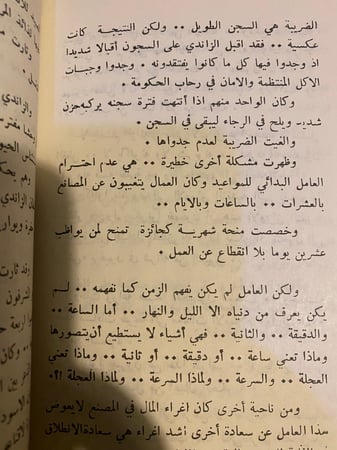 الضريبة هي السجن الطويل .. ولكن النتيجة كانت
عكسية .. فقد أقبل الزاندي على السجون أقبالا شديدا
اذ وجدوا فيها كل ما كانوا يفتقدونه . وجدوا وجبات
الاكل المنتظمة والامان في رحاب الحكومة .
وكان الواحد منهم اذا أنتهت فترة سجنه يركبه حزن
شديد ويلح في الرجاء ليبقى في السجن .
والغيت الضريبة لعدم جدواها .
وظهرت مشكلة أخرى خطيرة .. هي عدم احترام
العامل البدائي للمواعيد وكان العمال يتغيبون عن المصانع
بالعشرات .. بالساعات وبالايام ..
وخصصت منحة شهرية كجائزة تمنح لمن يواظب
عشرين يوما بلا انقطاع عن العمل .
ولكن العامل لم يكن يفهم الزمن كما نفهمه .. لم
يكن يعرف من دنياه الا الليل والنهار .. أما الساعة ..
والدقيقة .. والثانية .. فهي أشياء لا يستطيع أن يتصورها
وماذا تعني ساعة .. أو دقيقة .. أو ثانية .. وماذا تعني
العجلة .. والسرعة .. ولماذا السرعة .. ولماذا العجلة أ؟.
ومن ناحية أخرى كان اغراء المال في المصنع لا يعوض
هذا العامل عن سعادة أخرى أشد اغراء هي سعادة الانطلاق